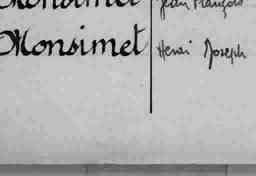 Monsimet Jean François
Monsimet Henri Joseph